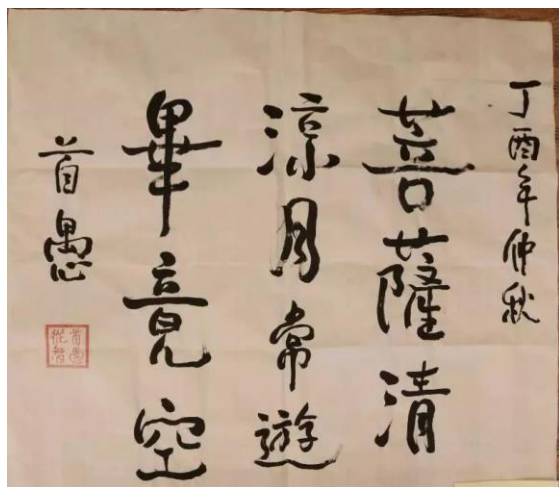 丁酉年仲秋
菩薩清
涼月常遊
畢竟空
首愚